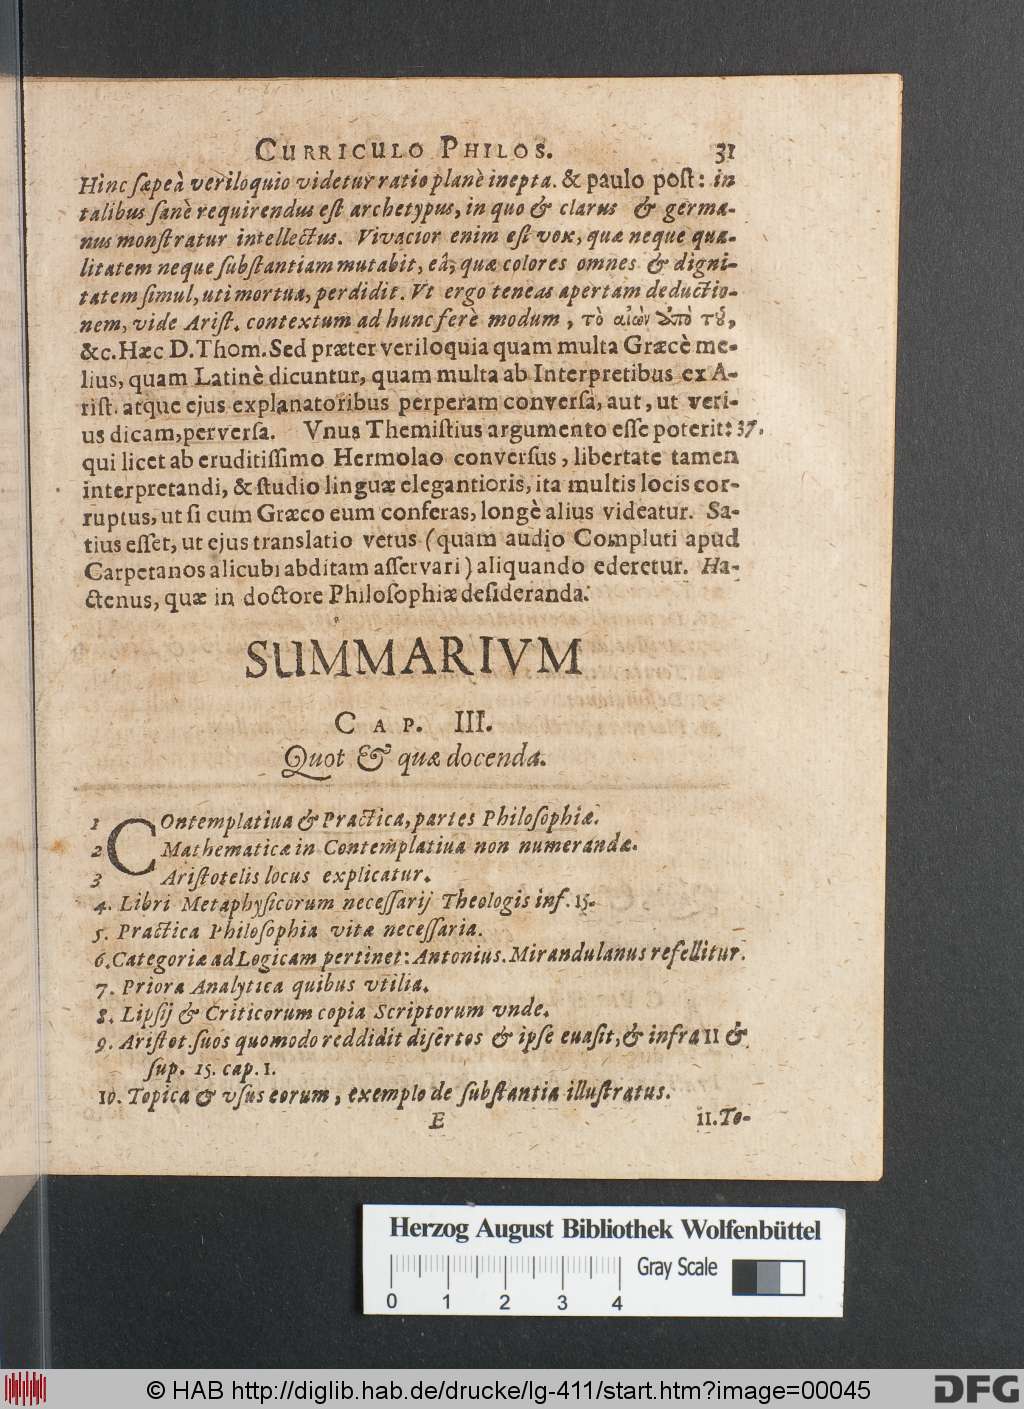 CURRICULO PHILOS. 31
Hinc sæpe à veriloquio videtur ratio planè inepta. & paulo post: in
talibus sanè requirendus est archetypus, in quo & clarus & germa-
nus monstratur intellectus. Vivacior enim est vox, quæ neque qua-
litatem neque substantiam mutabit, eâ, quæ colores omnes & digni-
tatem simul, uti mortua, perdidit. Vt ergo teneas apertam deductio-
nem, vide Arist. contextum ad hunc ferè modum, τὸ αἰὼν ἀπὸ τȣ͂,
&c. Hæc D. Thom. Sed præter veriloquia quam multa Græcè me-
lius, quam Latinè dicuntur, quam multa ab Interpretibus ex A-
rist. atque ejus explanatoribus perperam conversa, aut, ut veri-
us dicam, perversa. Vnus Themistius argumento esse poterit: 37.
qui licet ab eruditissimo Hermolao conversus, libertate tamen
interpretandi, & studio linguæ elegantioris, ita multis locis cor-
ruptus, ut si cum Græco eum conferas, longè alius videatur. Sa-
tius esset, ut ejus translatio vetus (quam audio Compluti apud
Carpetanos alicubi abditam asservari) aliquando ederetur. Ha-
ctenus, quæ in doctore Philosophiæ desideranda.
SUMMARIVM
CAP. III.
Quot & quæ docenda.
1 COntemplatiua & Practica, partes Philosophiæ.
2 Mathematicæ in Contemplatiua non numerandæ.
3 Aristotelis locus explicatur.
4. Libri Metaphysicorum necessarij Theologis inf. 15.
5. Practica Philosophia vitæ necessaria.
6. Categoriæ ad Logicam pertinet: Antonius. Mirandulanus refellitur.
7. Priora Analytica quibus vtilia.
8. Lipsij & Criticorum copia Scriptorum vnde.
9. Aristot. suos quomodo reddidit disertos & ipse euasit, & infra 11 &
sup. 15. cap. 1.
10. Topica & vsus eorum, exemplo de substantia illustratus.
E 11. To-
Herzog August Bibliothek Wolfenbüttel
Gray Scale
0 1 2 3 4
© HAB http://diglib.hab.de/drucke/lg-411/start.htm?image=00045
DFG